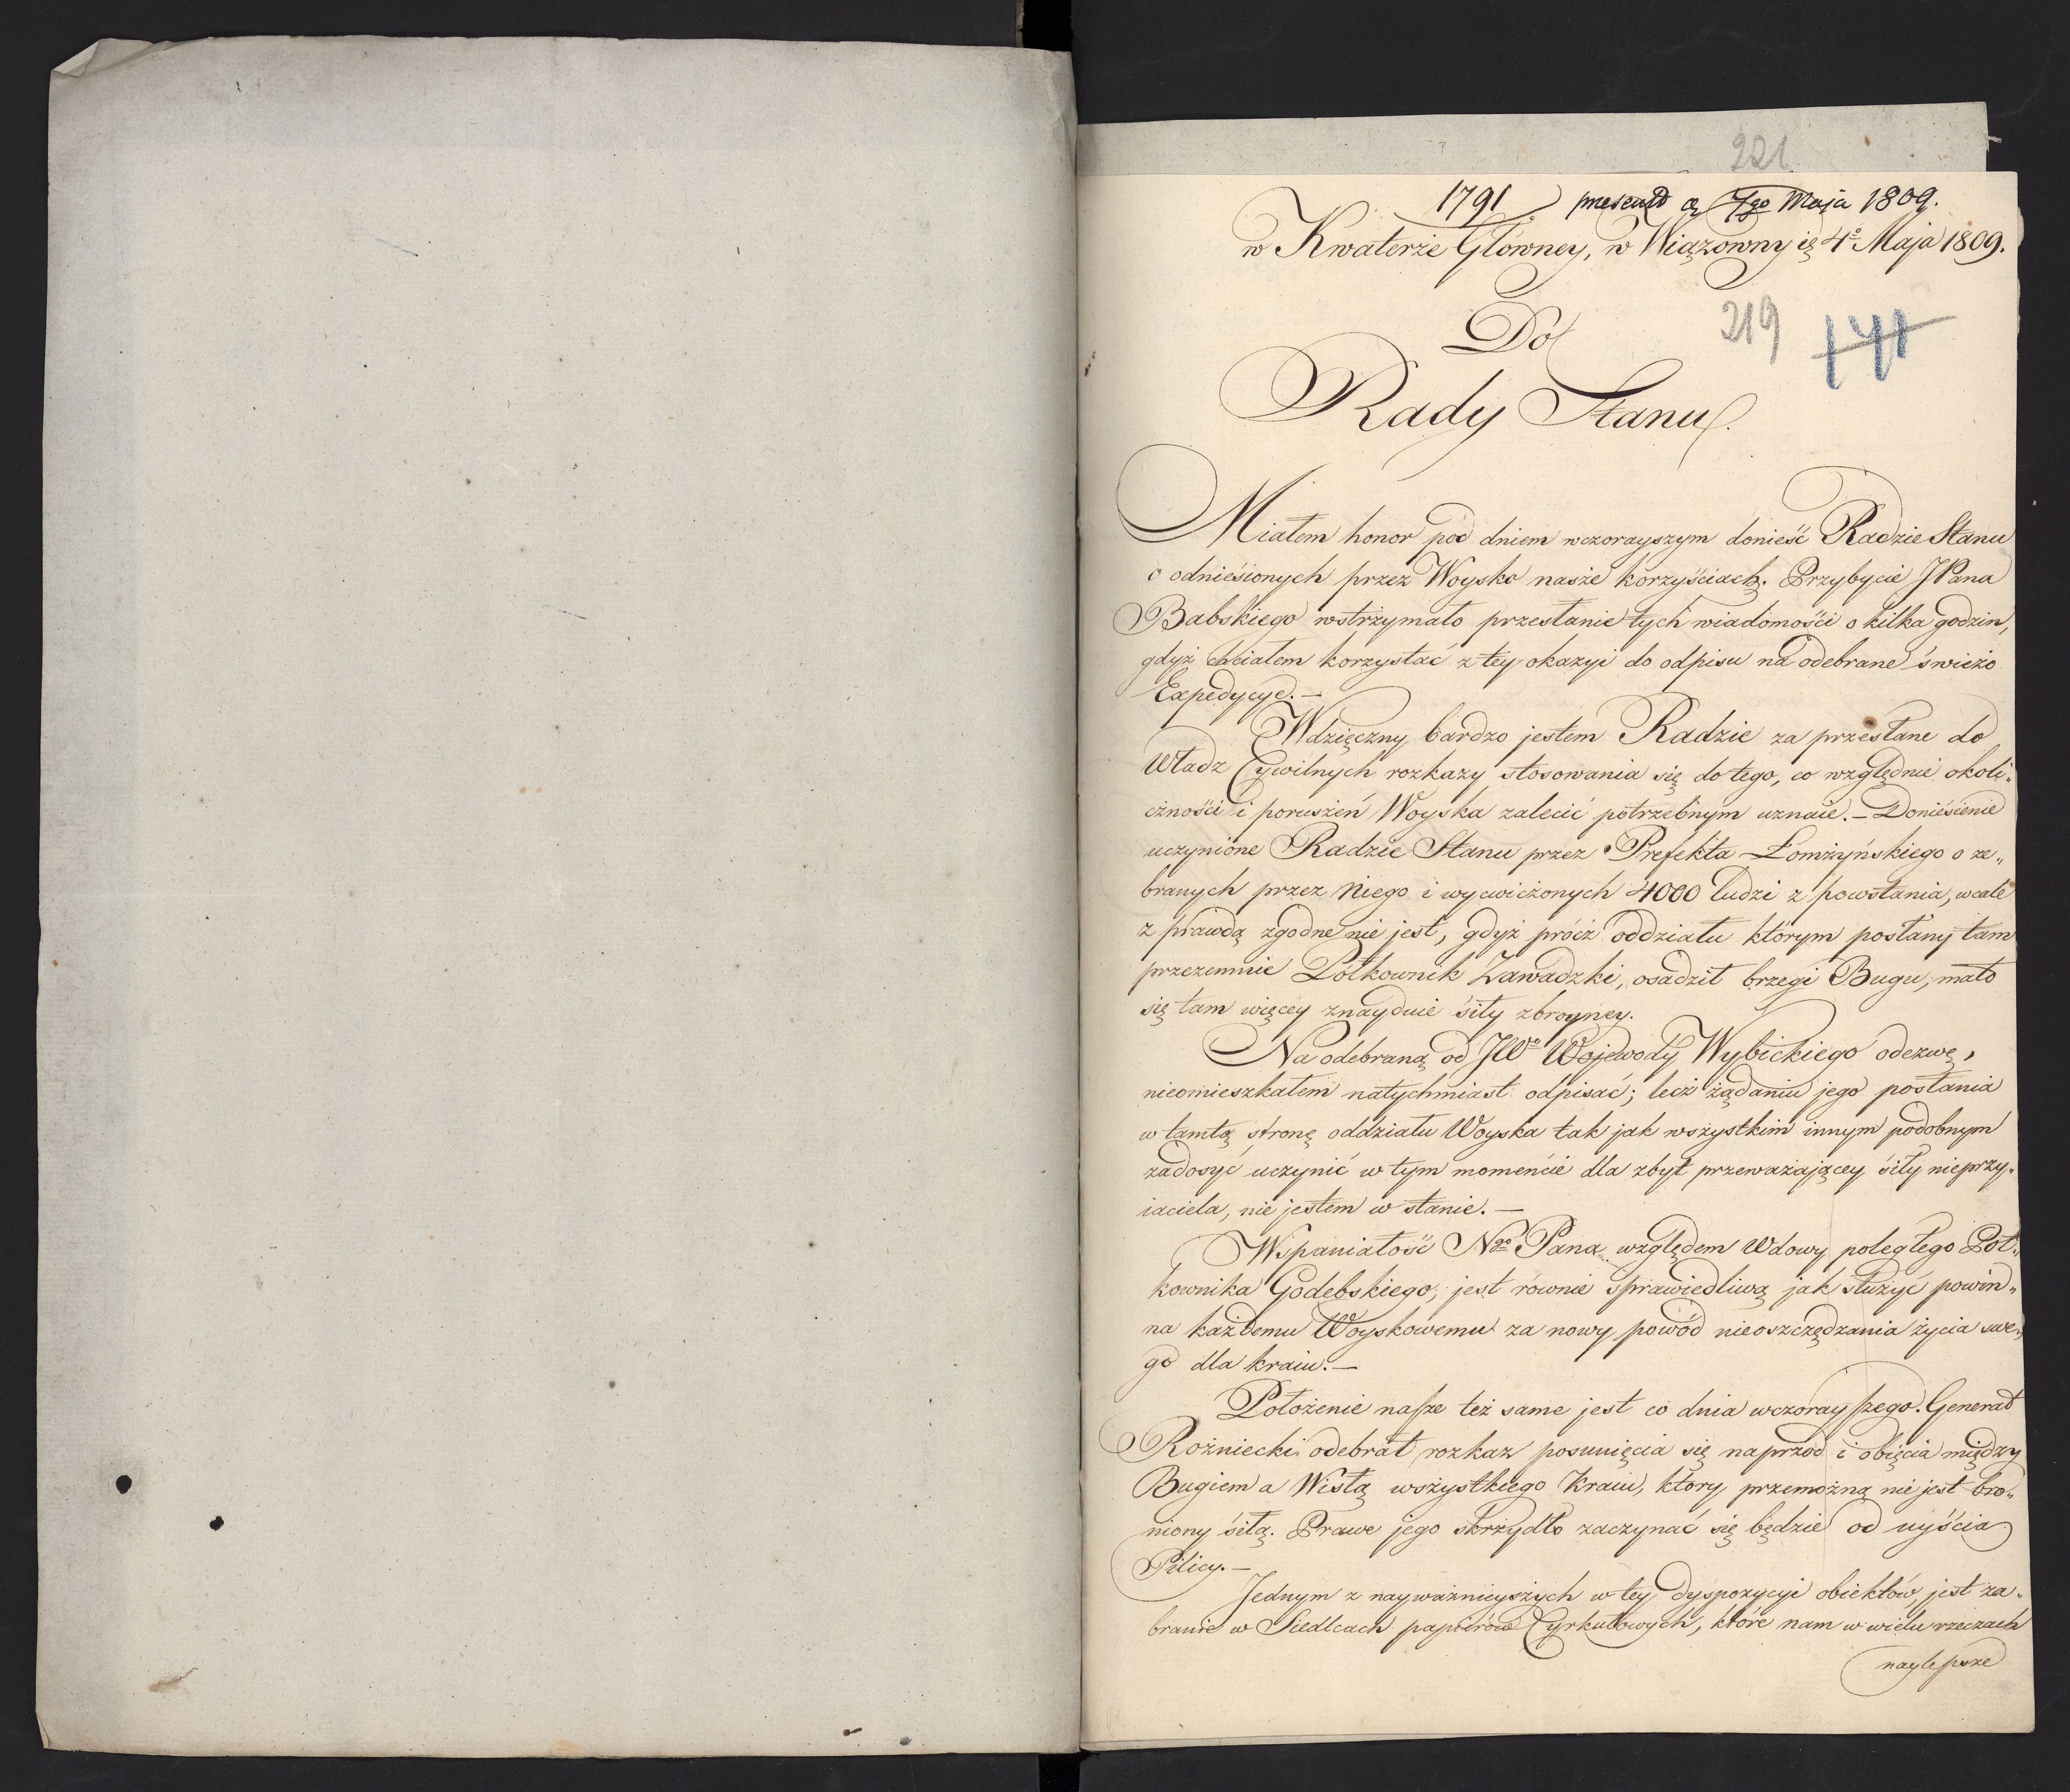 221
1791 praesent d 7go Maja 1809.
w Kwaterze Główney, w Wiązowny ię 4o Maja 1809.
219 141
Do
Rady Stanu.
Miałem honor pod dniem wczorayszym donieść Radzie Stanu
o odnieśionych przez Woysko nasze korzyściach. Przybycie JPana
Babskiego wstrzymało przesłanie tych wiadomości o kilka godzin,
gdyż chciałem korzystać z tey okazyi do odpisu na odebrane świeżo
Expedycye.—
Wdzięczny bardzo jestem Radzie za przesłane do
Władz Cywilnych rozkazy stosowania się do tego, co względnie okoli„
czności i poruszeń Woyska zalecić potrzebnym uznaie.— Donieśienie
uczynione Radzie Stanu przez Prefekta Łomżyńskiego o ze„
branych przez Niego i wycwiczonych 4000 ludzi z powstania, wcale
z prawdą zgodne nie jest, gdyż prócz oddziału którym posłany tam
przezemnie Połkownik Zawadzki, osadził brzegi Bugu, mało
się tam więcey znayduie siły zbroyney.
Na odebraną od JWo Wojewody Wybickiego odezwę,
nieomieszkałem natychmiast odpisać; lecz żądaniu jego posłania
w tamtą stronę oddziału Woyska tak jak wszystkim innym podobnym
zadosyć uczynić w tym momencie dla zbyt przeważającey siły nieprzy„
iaciela, nie jestem w stanie.—
Wspaniałość Ngo Pana względem Wdowy poległego Poł„
kownika Godebskiego, jest równie sprawiedliwą jak służyć powin„
na każdemu Woyskowemu za nowy powód nieoszczędzania życia swe„
go dla kraiu.—
Położenie nasze też same jest co dnia wczorayszego. Generał
Rożniecki odebrał rozkaz posunięcia się naprzód i obięcia między
Bugiem a Wisłą wszystkiego Kraiu, który przemożną nie jest bro„
niony siłą. Prawe jego skrzydło zaczynać się będzie od uyścia
Pilicy.—
Jednym z nayważnieyszych w tey dyspozycyi obiektów, jest za„
branie w Siedlcach papierów Cyrkułowych, które nam w wielu rzeczach
naylepsze